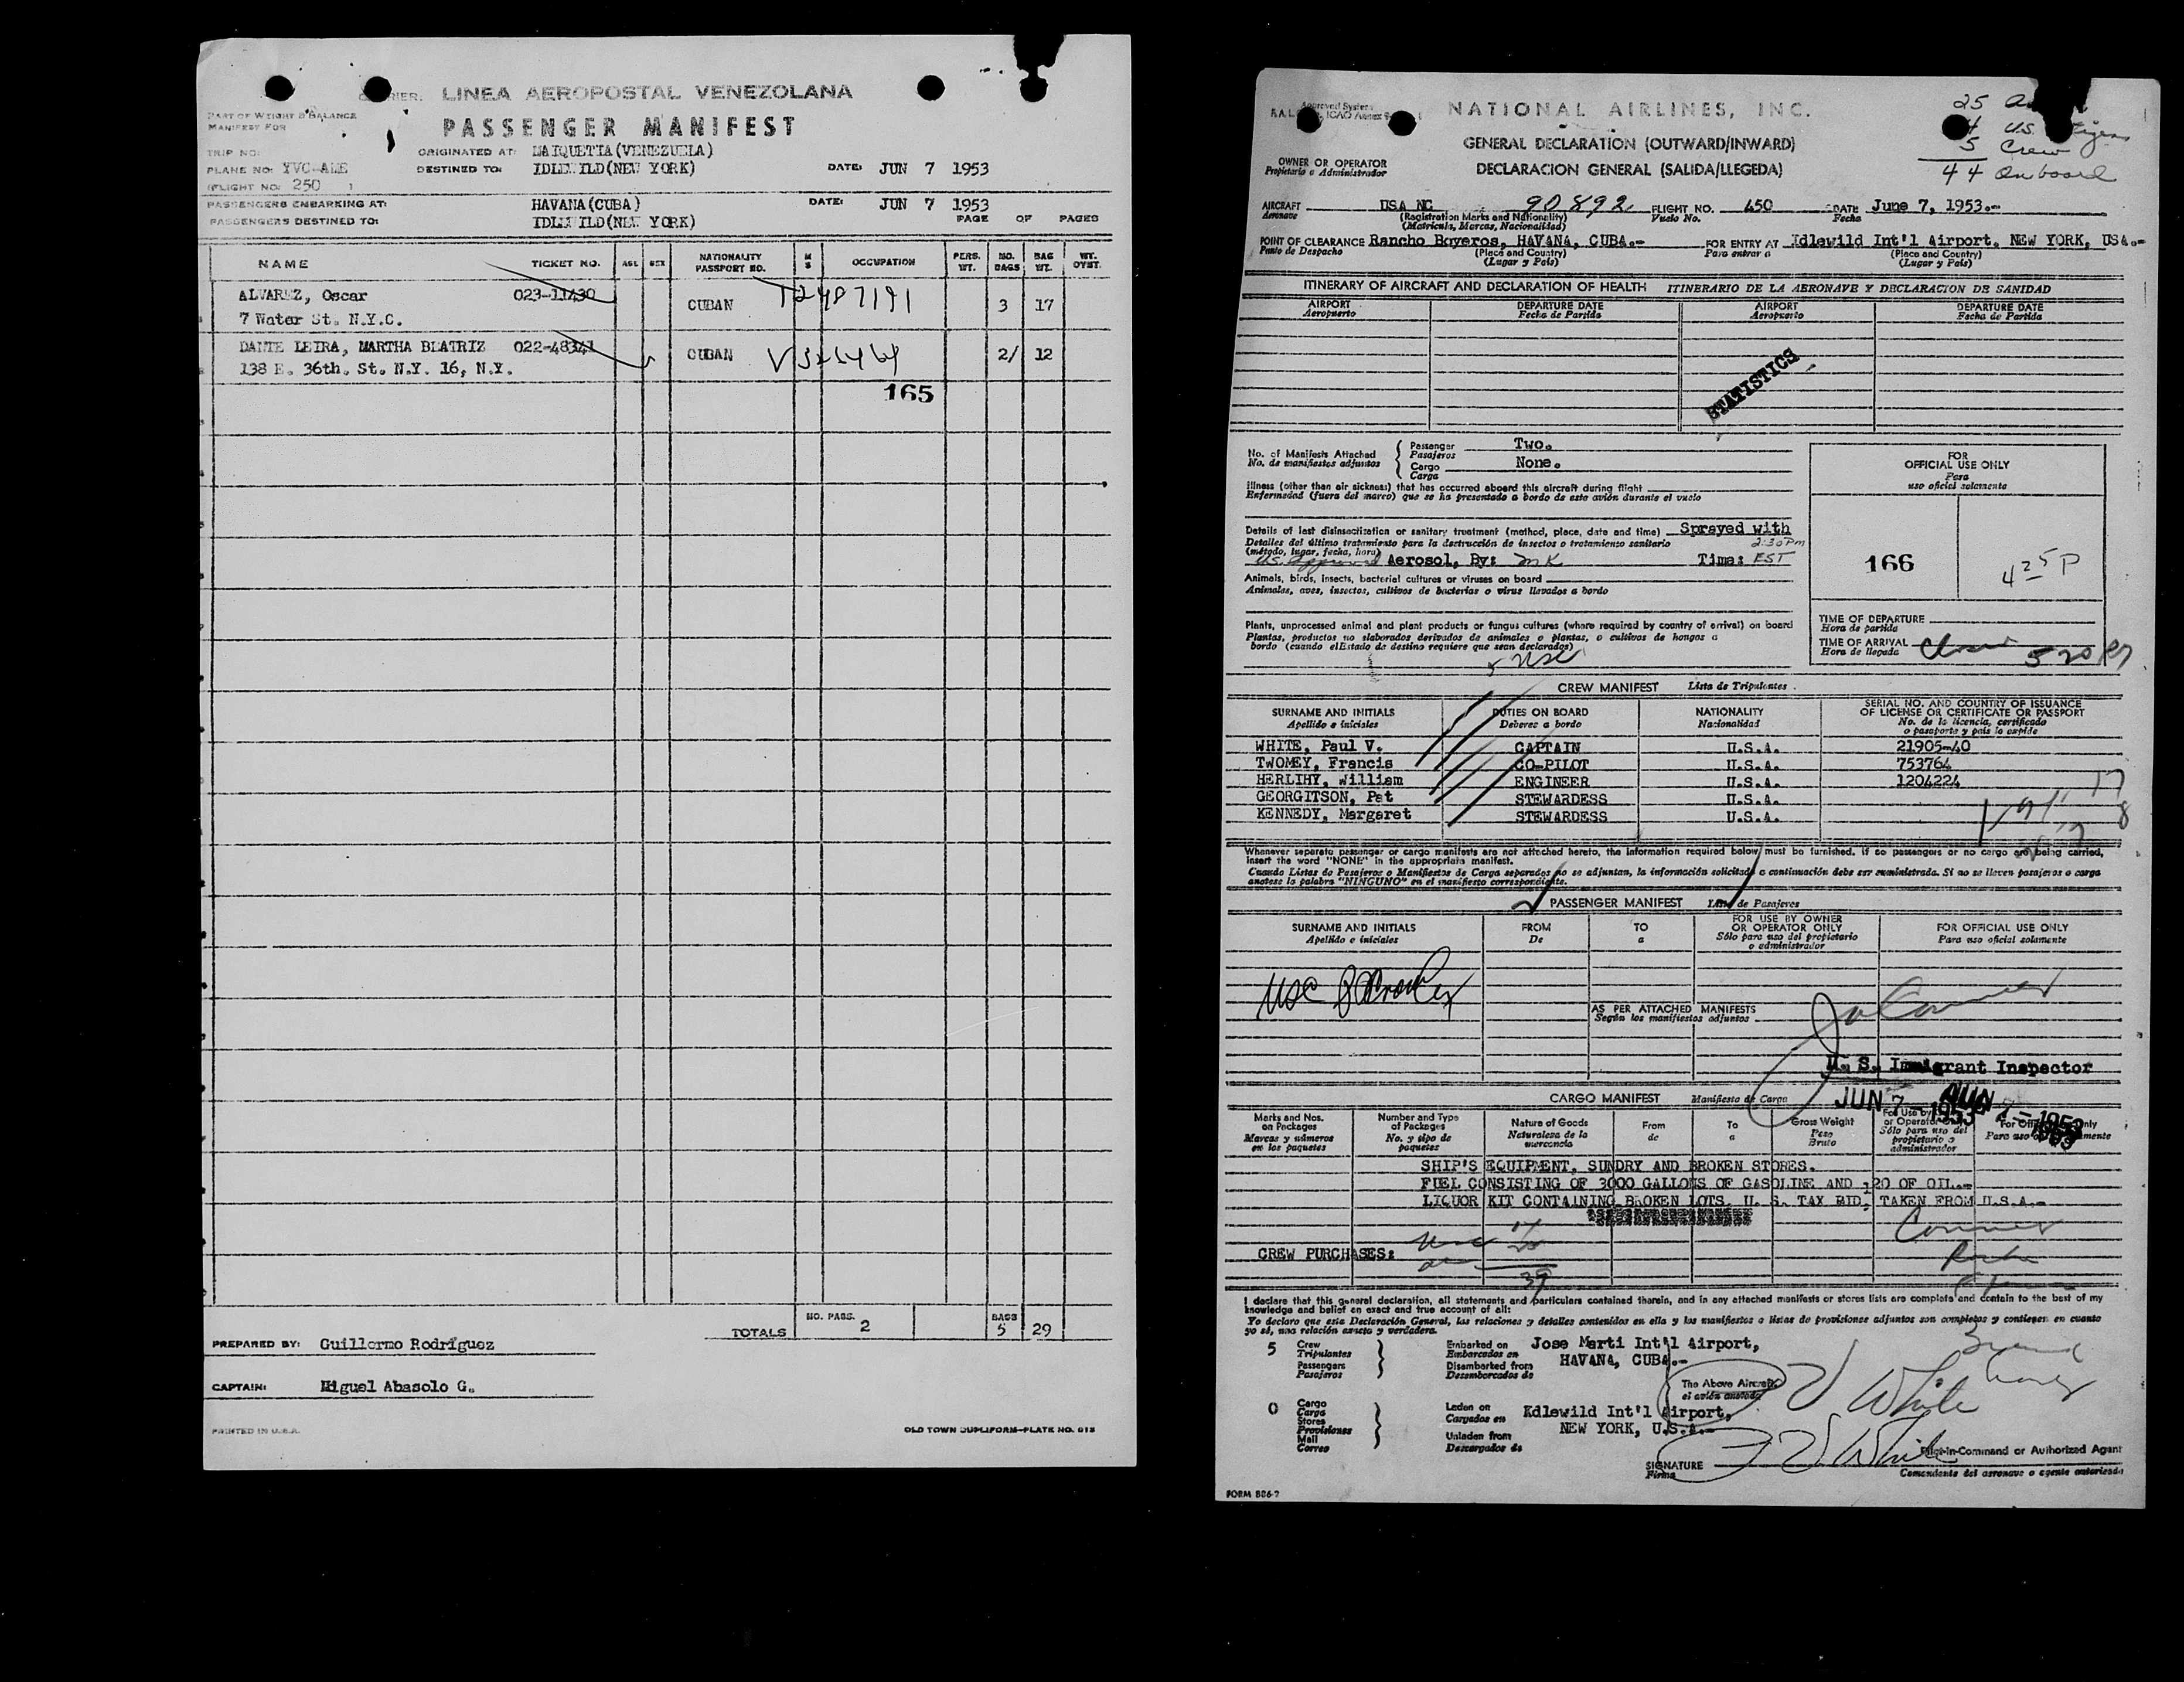 LINEA AEROPOSTAL VENEZOLANA
PART OF WEIGHT & BALANCE
MANIFEST FOR
PASSENGER MANIFEST
TRIP NO:
ORIGINATED AT: MAIQUETIA(VENEZUELA)
PLANE NO: YVC-AME DESTINED TO: IDLEWILD(NEW YORK) DATE: JUN 7 1953
(FLIGHT NO: 250 )
PASSENGERS EMBARKING AT: HAVANA(CUBA) DATE: JUN 7 1953
PASSENGERS DESTINED TO: IDLEWILD(NEW YORK) PAGE OF PAGES
NAME TICKET NO. AGE SEX NATIONALITY PASSPORT NO. M S OCCUPATION PERS. WT. NO. BAGS BAG WT. WT. OVWT.
ALVAREZ, Oscar 023-11430 CUBAN 3 17
7 Water St. N.Y.C.
DANTE LEIRA, MARTHA BEATRIZ 022-48341 CUBAN 2/ 12
138 E. 36th. St. N.Y. 16, N.Y.
165
TOTALS NO. PASS. 2 BAGS 5 29
PREPARED BY: Guillermo Rodríguez
CAPTAIN: Miguel Abasolo G.
PRINTED IN U.S.A.
OLD TOWN DUPLIFORM-PLATE NO. 615
NATIONAL AIRLINES, INC.
25
U.S.
5 Crew
44 On board
GENERAL DECLARATION (OUTWARD/INWARD)
DECLARACION GENERAL (SALIDA/LLEGEDA)
OWNER OR OPERATOR
Propietario o Administrador
AIRCRAFT USA NC 90892 FLIGHT NO. 450 DATE June 7, 1953.-
Aeronave (Registration Marks and Nationality) Vuelo No. Fecha
(Matricula, Marcas, Nacionalidad)
POINT OF CLEARANCE Rancho Boyeros, HAVANA, CUBA.- FOR ENTRY AT Idlewild Int'l Airport, NEW YORK, USA.-
Punto de Despacho (Place and Country) Para entrar a (Place and Country)
(Lugar y País) (Lugar y País)
ITINERARY OF AIRCRAFT AND DECLARATION OF HEALTH ITINERARIO DE LA AERONAVE Y DECLARACION DE SANIDAD
AIRPORT DEPARTURE DATE AIRPORT DEPARTURE DATE
Aeropuerto Fecha de Partida Aeropuerto Fecha de Partida
STATISTICS
No. of Manifests Attached Passenger Two.
No. de manifiestos adjuntos Pasajeros
Cargo None.
Carga
Illness (other than air sickness) that has occurred aboard this aircraft during flight
Enfermedad (fuera del mareo) que se ha presentado a bordo de este avión durante el vuelo
Details of last disinsectization or sanitary treatment (method, place, date and time) Sprayed with
Detalles del último tratamiento para la destrucción de insectos o tratamiento sanitario 2:30 Pm
(método, lugar, fecha, hora) Aerosol, By: MK Time: EST
Animals, birds, insects, bacterial cultures or viruses on board
Animales, aves, insectos, cultivos de bacterias o virus llevados a bordo
Plants, unprocessed animal and plant products or fungus cultures (where required by country of arrival) on board
Plantas, productos no elaborados derivados de animales o plantas, o cultivos de hongos a
bordo (cuando el Estado de destino requiere que sean declarados)
FOR
OFFICIAL USE ONLY
Para
uso oficial solamente
166
4 25 P
TIME OF DEPARTURE
Hora de partida
TIME OF ARRIVAL
Hora de llegada
CREW MANIFEST Lista de Tripulantes
SURNAME AND INITIALS DUTIES ON BOARD NATIONALITY SERIAL NO. AND COUNTRY OF ISSUANCE OF LICENSE OR CERTIFICATE OR PASSPORT
Apellido e iniciales Deberes a bordo Nacionalidad No. de la licencia, certificado o pasaporte y país lo expide
WHITE, Paul V. CAPTAIN U.S.A. 21905-40
TWOMEY, Francis CO-PILOT U.S.A. 753764
HERLIHY, William ENGINEER U.S.A. 1204224
GEORGITSON, Pat STEWARDESS U.S.A.
KENNEDY, Margaret STEWARDESS U.S.A.
Whenever separate passenger or cargo manifests are not attached hereto, the information required below must be furnished. If no passengers or no cargo are being carried,
insert the word "NONE" in the appropriate manifest.
Cuando Listas de Pasajeros o Manifiestos de Carga separados no se adjuntan, la información solicitada a continuación debe ser suministrada. Si no se lleven pasajeros o carga
anotese la palabra "NINGUNO" en el manifiesto correspondiente.
PASSENGER MANIFEST Lista de Pasajeros
SURNAME AND INITIALS FROM TO FOR USE BY OWNER OR OPERATOR ONLY FOR OFFICIAL USE ONLY
Apellido e iniciales De a Sólo para uso del propietario o administrador Para uso oficial solamente
AS PER ATTACHED MANIFESTS
Según los manifiestos adjuntos
U. S. Immigrant Inspector
JUN 7 - 1953
CARGO MANIFEST Manifiesto de Carga
Marks and Nos. on Packages Number and Type of Packages Nature of Goods From To Gross Weight For Use by or Operator
Marcas y números en los paquetes No. y tipo de paquetes Naturaleza de la mercancía de a Peso Bruto Sólo para uso del propietario o administrador
SHIP'S EQUIPMENT, SUNDRY AND BROKEN STORES.
FUEL CONSISTING OF 3000 GALLONS OF GASOLINE AND 120 OF OIL.-
LIQUOR KIT CONTAINING BROKEN LOTS, U. S. TAX PID, TAKEN FROM U.S.A.-
CREW PURCHASES:
39
I declare that this general declaration, all statements and particulars contained therein, and in any attached manifests or stores lists are complete and contain to the best of my
knowledge and belief an exact and true account of all:
Yo declaro que esta Declaración General, las relaciones y detalles contenidos en ella y los manifiestos o listas de provisiones adjuntos son completos y contienen en cuanto
yo sé, una relación exacta y verdadera.
5 Crew Embarked on Jose Marti Int'l Airport,
Tripulantes Embarcados en HAVANA, CUBA.-
Passengers Disembarked from
Pasajeros Desembarcados de
The Above Aircraft
el avión anotado
0 Cargo Laden on Edlewild Int'l Airport,
Carga Cargados en
Stores NEW YORK, U.S.A.-
Provisiones Unladen from
Mail Descargados de
Correo
White
Pilot-in-Command or Authorized Agent
SIGNATURE White
Firma Comandante del aeronave o agente autorizado
FORM 886-7